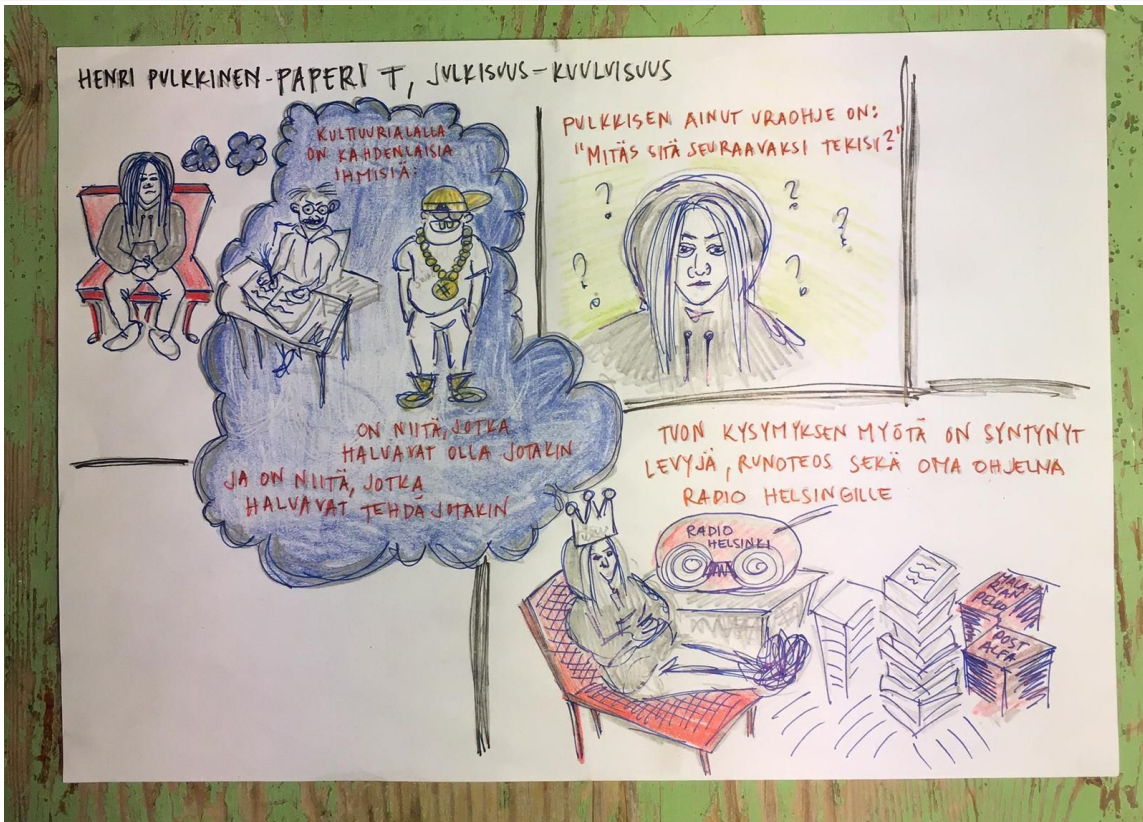 HENRI PULKKINEN-PAPERI T, JULKISUUS-KUULUISUUS
KULTTUURIALALLA
ON KAHDENLAISIA
IHMISIÄ:
ON NIITÄ, JOTKA
HALUAVAT OLLA JOTAKIN
JA ON NIITÄ, JOTKA
HALUAVAT TEHDÄ JOTAKIN
PULKKISEN AINUT URAOHJE ON:
"MITÄS SITÄ SEURAAVAKSI TEKISI?"
? ? ? ? ?
TUON KYSYMYKSEN MYÖTÄ ON SYNTYNYT
LEVYJÄ, RUNOTEOS SEKÄ OMA OHJELMA
RADIO HELSINGILLE
RADIO
HELSINKI
MALA-
RIAN
PELKO
POST
ALFA